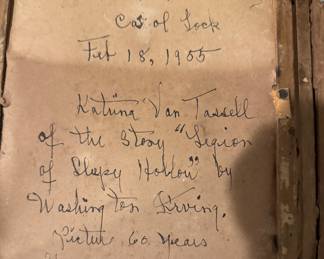 Carol Lock
Feb 18, 1955
Katrina Van Tassell
of the Story "Legion
of Sleepy Hollow" by
Washington Irving.
Pictur 60 years